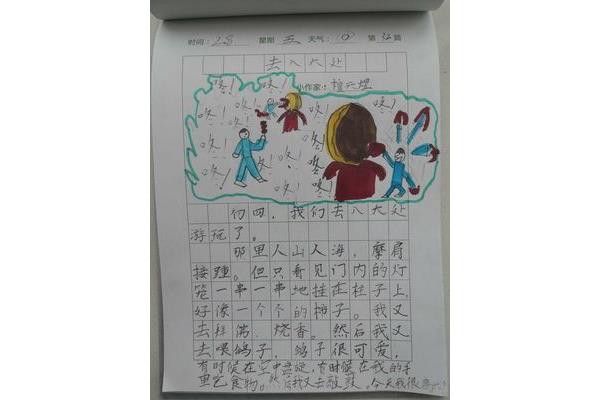 时间：2.8 星期 五 天气： 第 篇
去八大处
小作家：
咚！ 咚！
咚！ 咚！ 咚！ 咚！
咚！ 咚！ 咚！
咚！ 咚！ 咚！
咚！ 咚！ 咚！
初四，我们去八大处
游玩了。
那里人山人海，摩肩
接踵。但只看见门内的灯
笼一串一串地挂在柱子上，
好像一个个的柿子。我又
去拜佛、烧香。然后，我又
去喂鸽子，鸽子很可爱，
有时候在空中盘旋，有时候在我的手
里吃食物。然后我又去敲鼓。今天我很